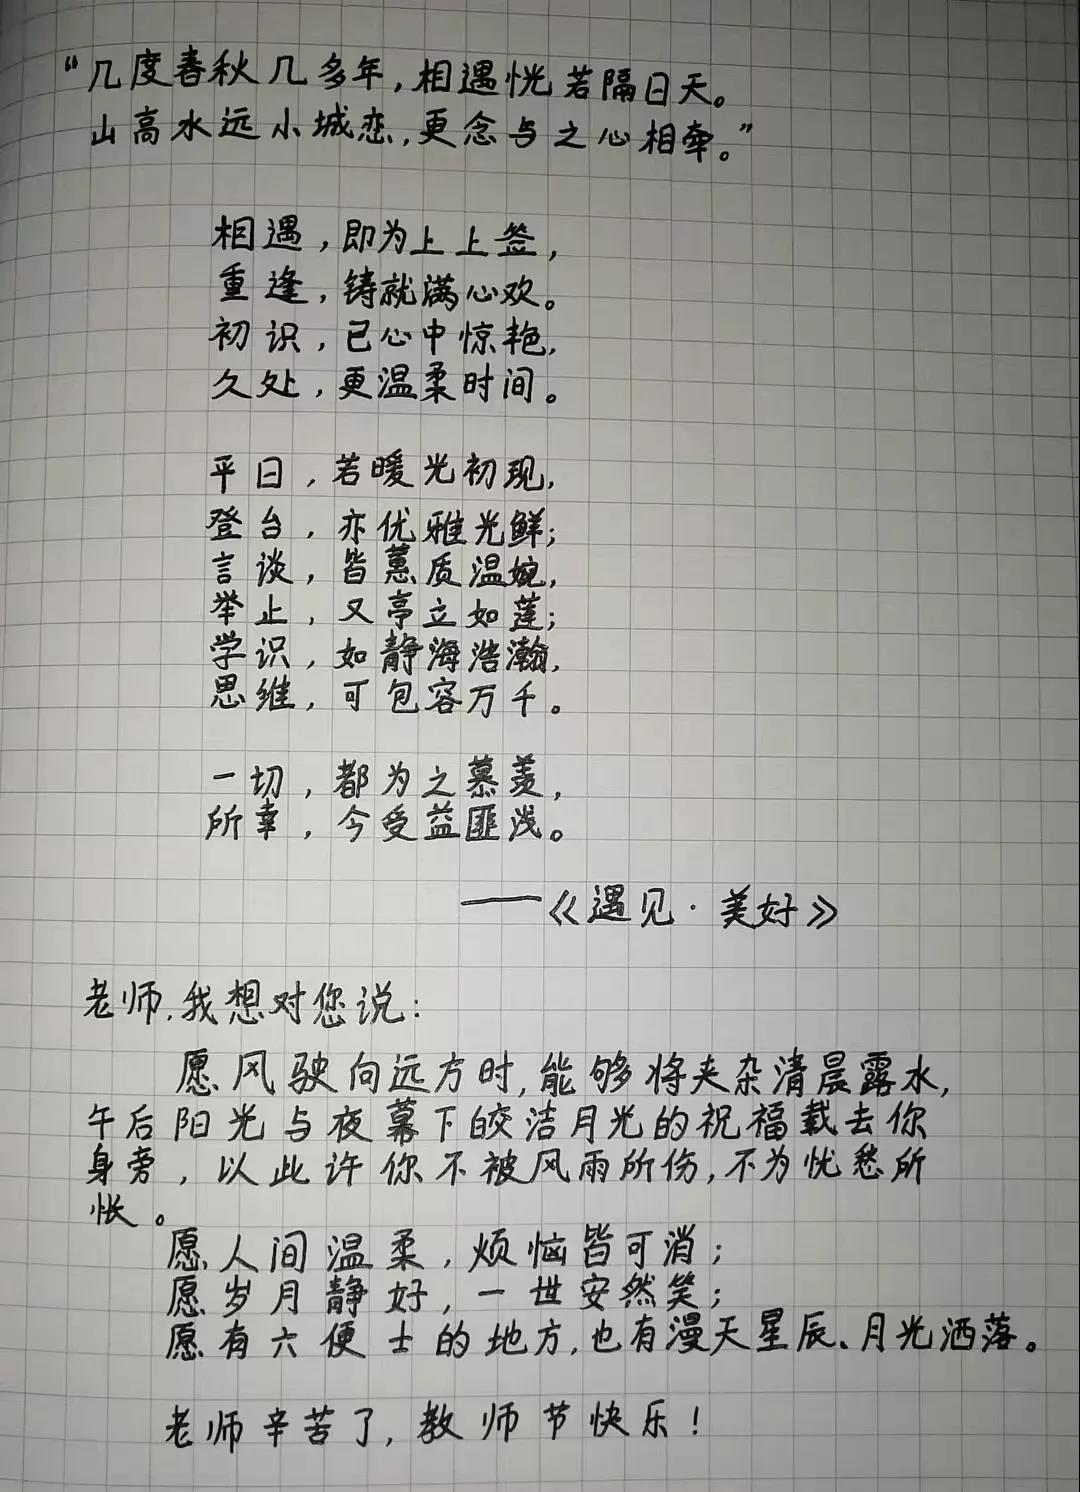 “几度春秋几多年,相遇恍若隔日天。
山高水远小城恋,更念与之心相牵。”
相遇,即为上上签,
重逢,铸就满心欢。
初识,已心中惊艳,
久处,更温柔时间。
平日,若暖光初现,
登台,亦优雅光鲜;
言谈,皆蕙质温婉,
举止,又亭立如莲;
学识,如静海浩瀚,
思维,可包容万千。
一切,都为之慕羡,
所幸,今受益匪浅。
——《遇见·美好》
老师,我想对您说:
愿风驶向远方时,能够将夹杂清晨露水,
午后阳光与夜幕下皎洁月光的祝福载去你
身旁,以此许你不被风雨所伤,不为忧愁所
怅。
愿人间温柔,烦恼皆可消;
愿岁月静好,一世安然笑;
愿有六便士的地方,也有漫天星辰、月光洒落。
老师辛苦了,教师节快乐!